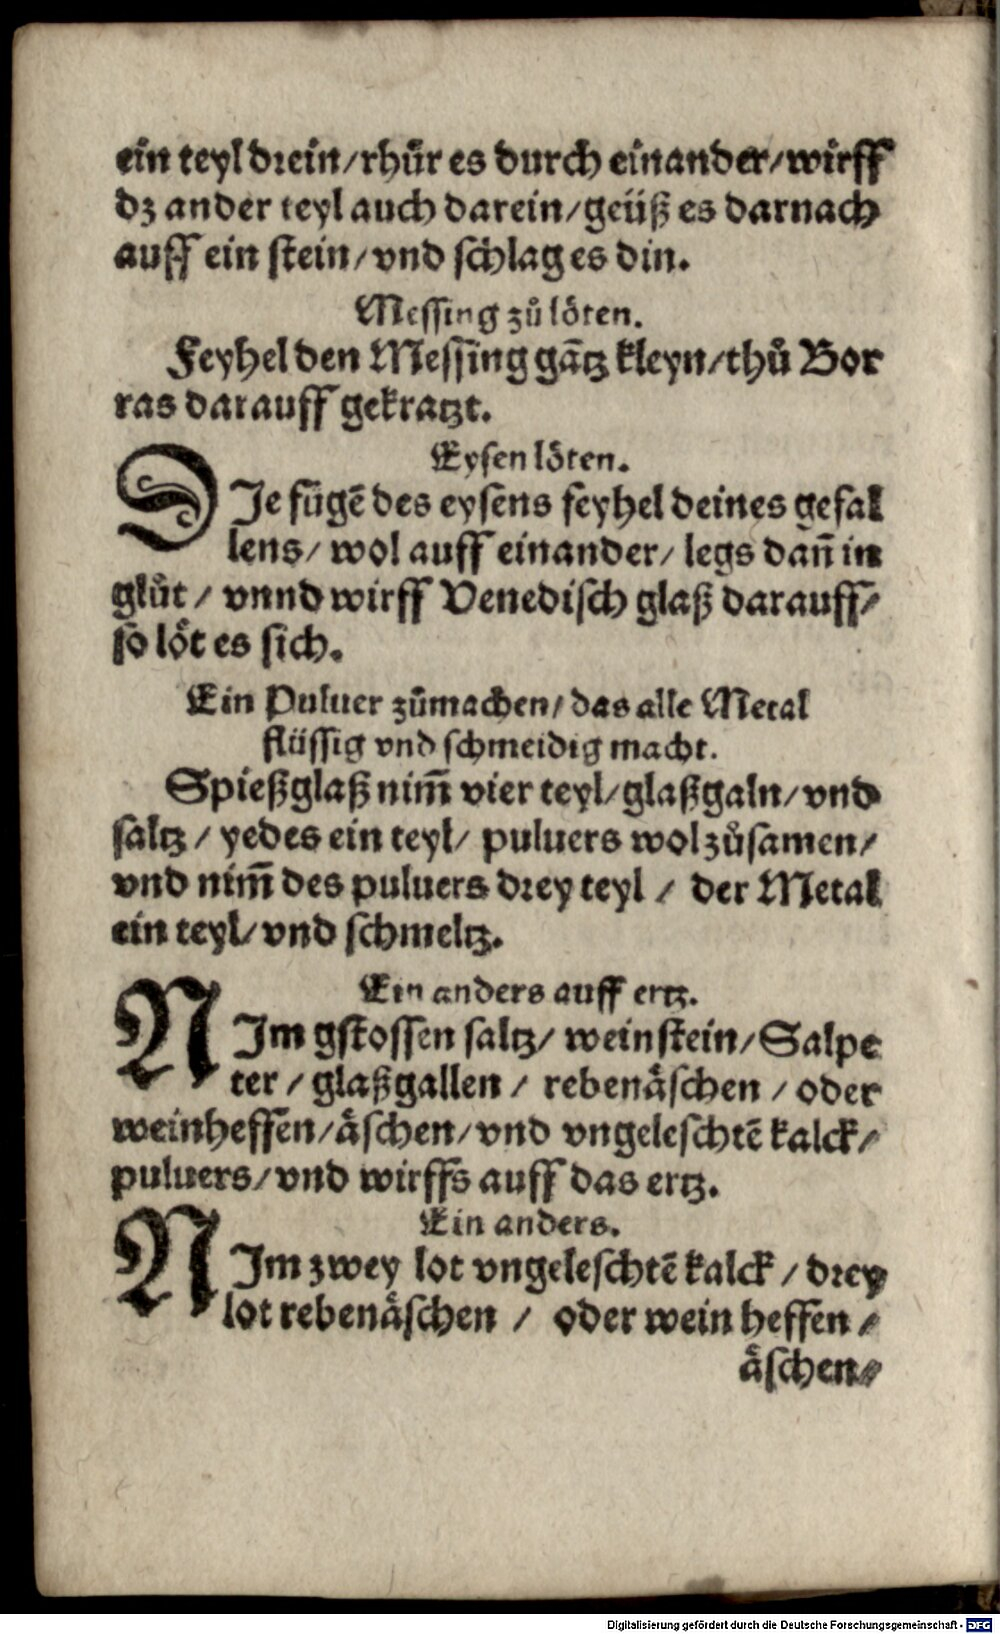 ein teyl drein/rhür es durch einander/wirff
dz ander teyl auch darein/geüß es darnach
auff ein stein/vnd schlag es din.
Messing zů löten.
Feyhel den Messing gātz kleyn/thů Bor
ras darauff gekratzt.
Eysen löten.
DJe fügē des eysens feyhel deines gefal
lens/ wol auff einander/ legs dañ in
glůt / vnnd wirff Venedisch glaß darauff/
so löt es sich.
Ein Puluer zůmachen/ das alle Metal
flüssig vnd schmeidig macht.
Spießglaß nim̄ vier teyl/glaßgaln/vnd
saltz / yedes ein teyl/ puluers wol zůsamen/
vnd nim̄ des puluers drey teyl / der Metal
ein teyl/vnd schmeltz.
Ein anders auff ertz.
NJm gstossen saltz/ weinstein/Salpe
ter / glaßgallen / rebenäschen / oder
weinheffen/äschen/vnd vngeleschtē kalck/
puluers/vnd wirffs auff das ertz.
Ein anders.
NJm zwey lot vngeleschtē kalck / drey
lot rebenäschen / oder wein heffen /
äschen/
Digitalisierung gefördert durch die Deutsche Forschungsgemeinschaft - DFG